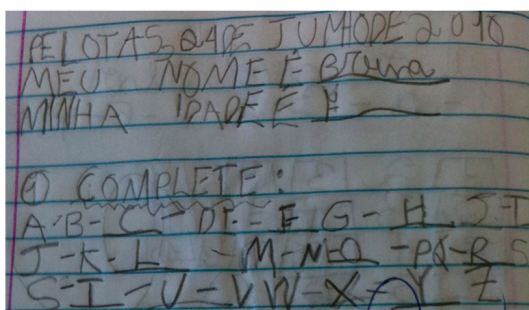 PELOTAS, 04 DE JUNHO DE 2010
MEU NOME É Bruna
MINHA IDADE É
1) COMPLETE:
A-B-C-DE-F G-H S-I
J-K-L-M-NEO-PQ-R S
S-T-U-V W-X-Y Z